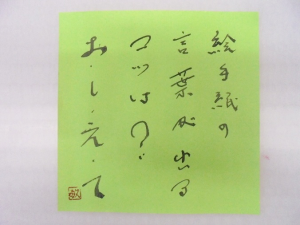 絵手紙の
言葉が出る
コツは?
お・し・え・て